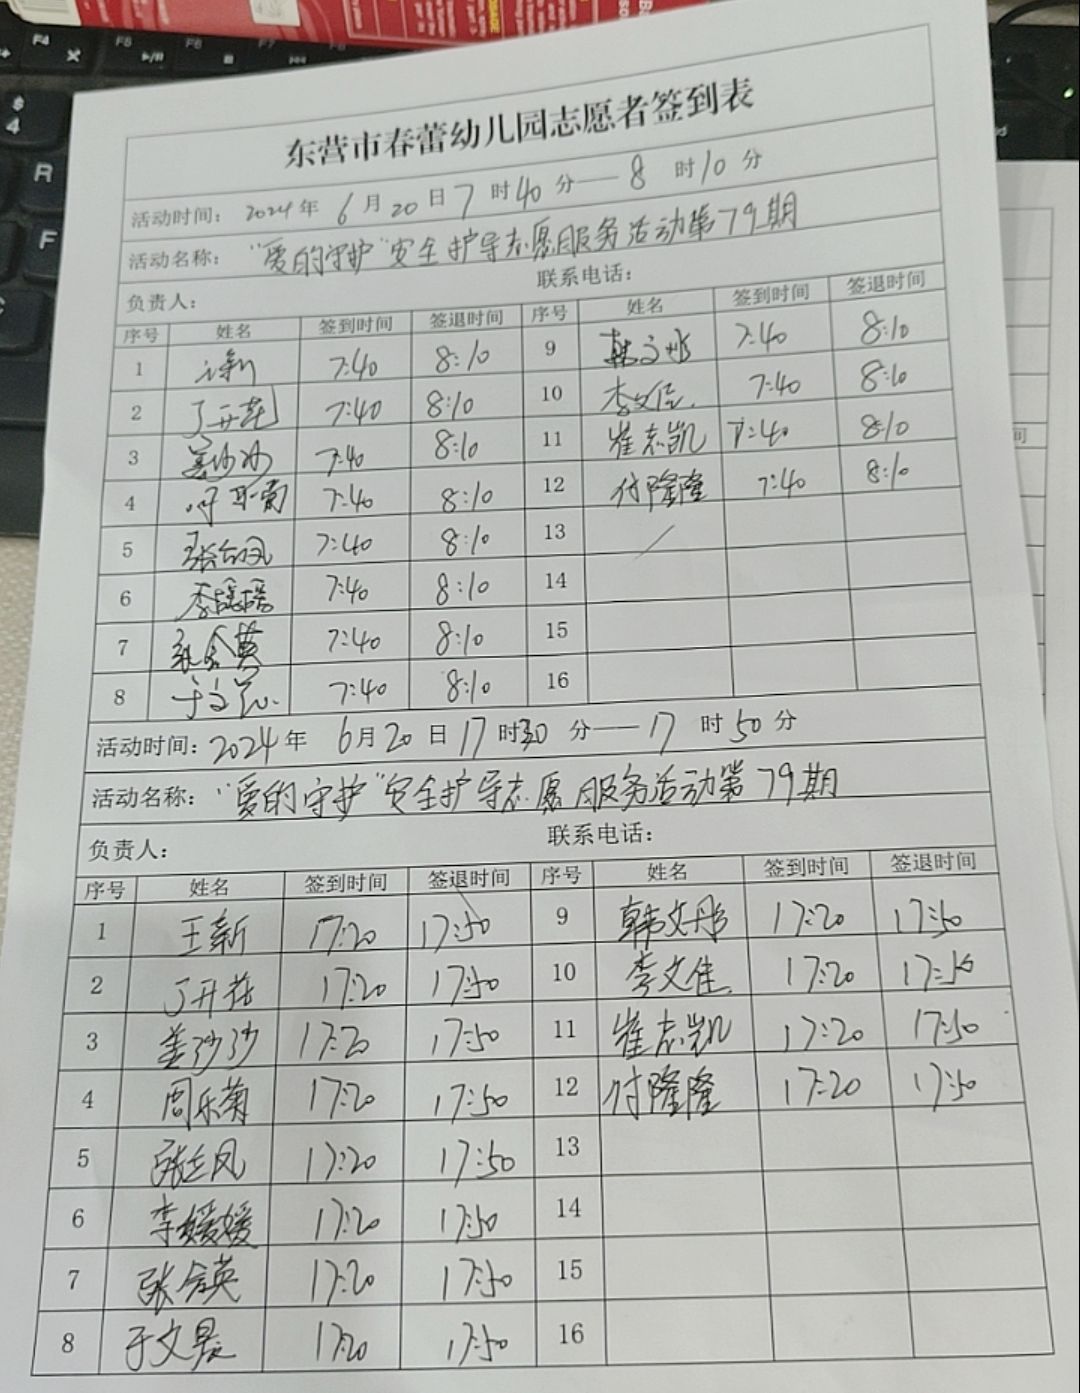 东营市春蕾幼儿园志愿者签到表
活动时间: 2024年 6月20日7时40分—8时10分
活动名称: "爱的守护"安全护导志愿服务活动第79期
负责人: 联系电话:
序号 姓名 签到时间 签退时间 序号 姓名 签到时间 签退时间
1 王新 7:40 8:10 9 韩文彤 7:40 8:10
2 丁开花 7:40 8:10 10 李文佳 7:40 8:10
3 姜沙沙 7:40 8:10 11 崔志凯 7:40 8:10
4 周乐菊 7:40 8:10 12 付隆隆 7:40 8:10
5 7:40 8:10 13
6 李媛媛 7:40 8:10 14
7 张会英 7:40 8:10 15
8 7:40 8:10 16
活动时间: 2024年 6月20日17时30分—17时50分
活动名称: "爱的守护"安全护导志愿服务活动第79期
负责人: 联系电话:
序号 姓名 签到时间 签退时间 序号 姓名 签到时间 签退时间
1 王新 17:20 17:50 9 韩文彤 17:20 17:50
2 丁开花 17:20 17:50 10 李文佳 17:20 17:50
3 姜沙沙 17:20 17:50 11 崔志凯 17:20 17:50
4 周乐菊 17:20 17:50 12 付隆隆 17:20 17:50
5 17:20 17:50 13
6 李媛媛 17:20 17:50 14
7 张会英 17:20 17:50 15
8 于文晨 17:20 17:50 16